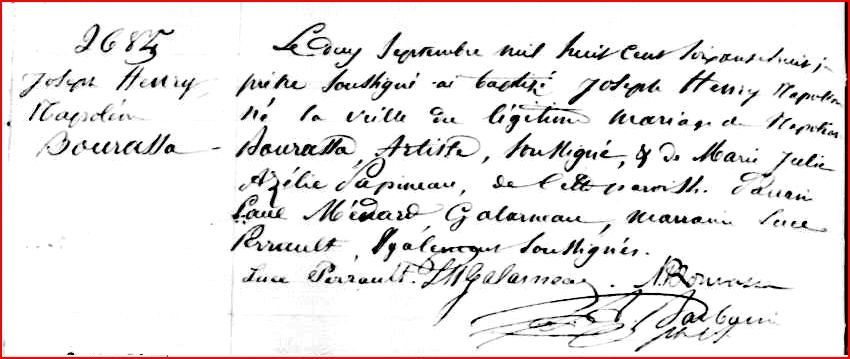 2685
Joseph Henry
Napoléon
Bourassa
Le deux Septembre mil huit cent soixante huit je
prêtre soussigné ai baptisé Joseph Henry Napoléon
né la veille du légitime mariage de Napoléon
Bourassa, Artiste, soussigné, & de Marie Julie
Azélie Papineau, de cette paroisse. Parrain
Paul Médard Galarneau, marraine Luce
Perrault, également soussignés.
Luce Perrault. PM Galarneau. N. Bourassa
ptre